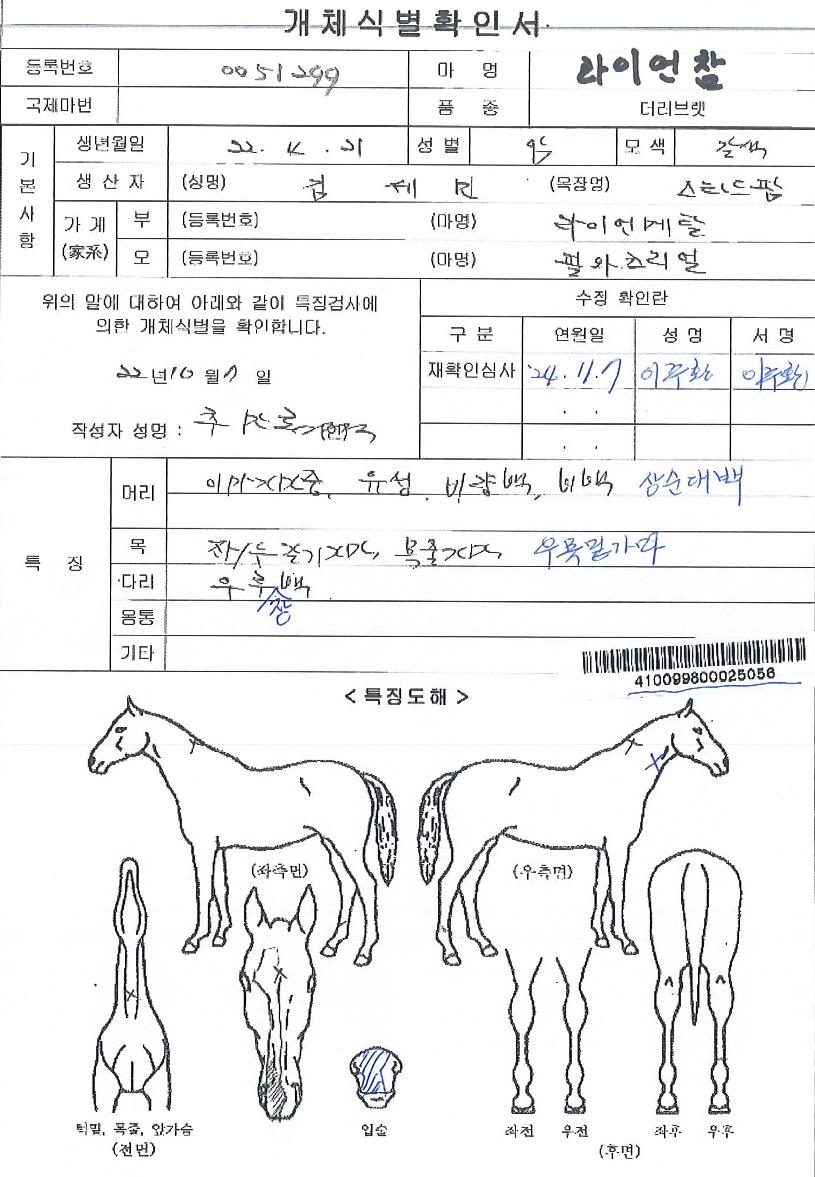 개체식별확인서
등록번호 0051299 마 명 라이언참
국제마번 품 종 더러브렛
기본사항
생년월일 22. 4. 21 성별 암 모색 갈색
생산자 (성명) 김 제 민 (목장명) 스타드팜
가계 (家系) 부 (등록번호) (마명) 라이언캐탈
모 (등록번호) (마명) 필와츠리얼
위의 말에 대하여 아래와 같이 특징검사에
의한 개체식별을 확인합니다.
22 년 10 월 7 일
작성자 성명 :
수정 확인란
구 분 연월일 성 명 서 명
재확인심사 '24. 11. 7
특 징
머리 이마가마중, 유성, 비량백, 비백 상순대백
목 좌/우 갈기가마, 목줄가마 우목밑가마
다리 우후장백
몸통
기타
410099800025056
< 특징도해 >
(좌측면) (우측면)
턱밑, 목줄, 앞가슴
(전면)
입술
좌전 우전 좌후 우후
(후면)